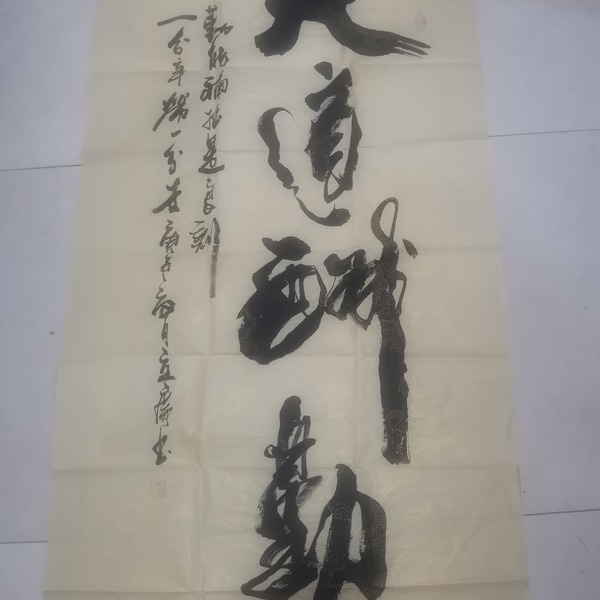 天道酬勤
勤能補拙是良訓
一分辛勞一分才 月 书